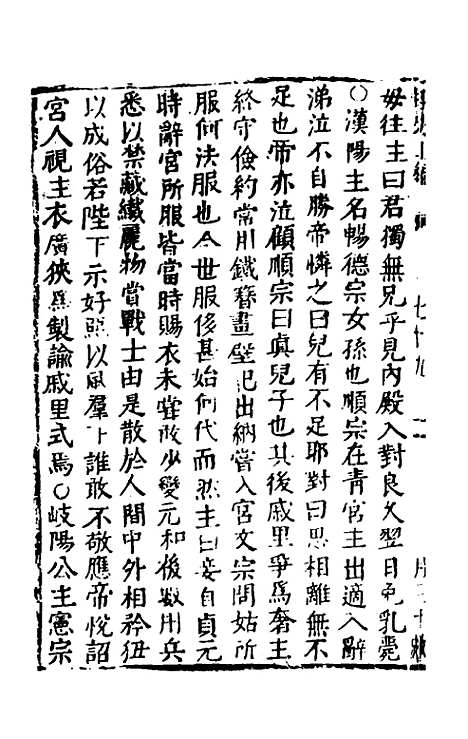 毋往主曰君獨無兄乎見內殿入對良久翌日乳薨
○漢陽主名暢德宗女孫也順宗在青宮主出適入辭
涕泣不自勝帝憐之曰兒有不足耶對曰思相離無不
足也帝亦泣顧順宗曰真兒子也其後戚里爭為奢主
終守儉約常用鐵簪畫壁記出納嘗入宮文宗問姑所
服何法服也今世服侈甚始何代而然主曰妾自貞元
時辭宮所服皆當時賜衣未嘗改少變元和後數用兵
悉以禁藏纖麗物賞戰士由是散於人間中外相矜忸
以成俗若陛下示好惡以風羣下誰敢不敬應帝悅詔
宮人視主衣廣狹為製諭戚里式焉○岐陽公主憲宗